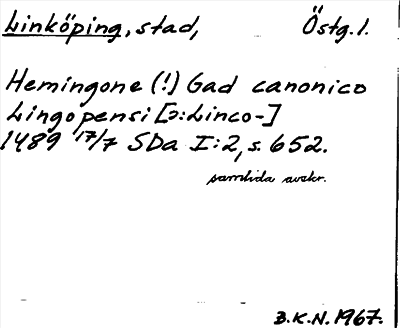 Linköping, stad, Östg. l.
Hemingone (!) Gad canonico
Lingopensi [ɔ: Linco-]
1489 17/7 SDa I:2, s. 652.
samtida avskr.
B.K.N. 1967.